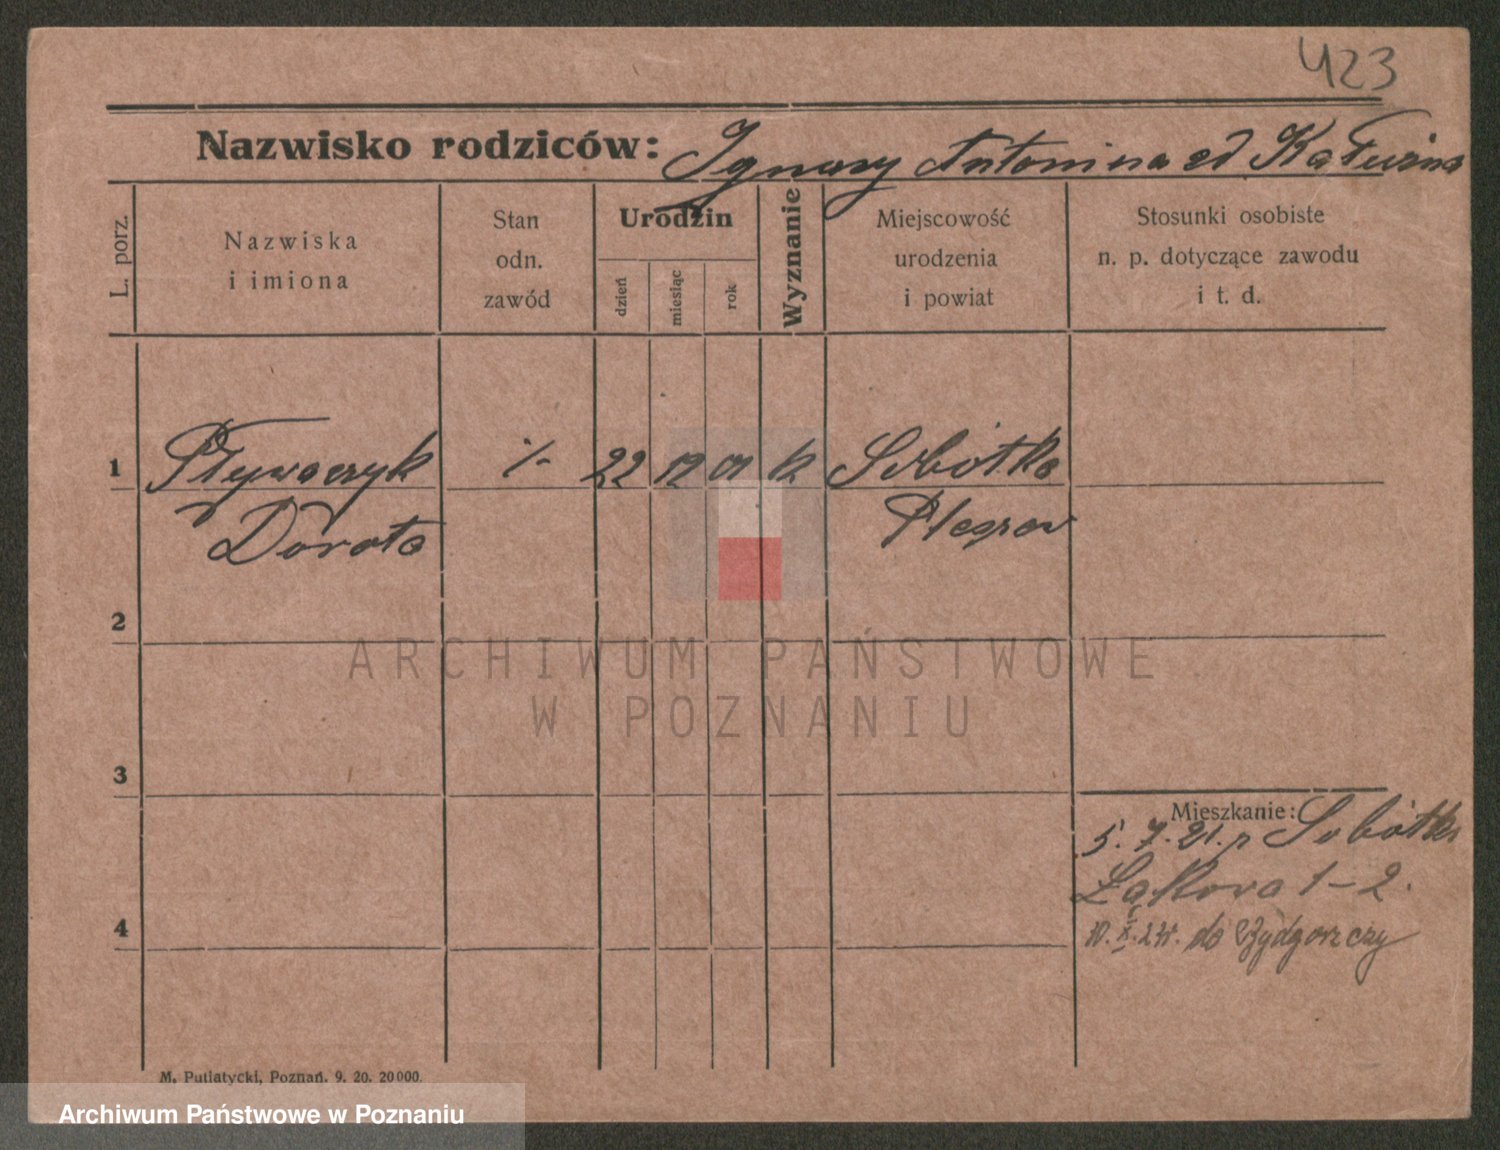 423
Nazwisko rodziców: Ignacy Antonina zd Kałużna
L. porz.
Nazwiska
i imiona
Stan
odn.
zawód
Urodzin
dzień
miesiąc
rok
Wyznanie
Miejscowość
urodzenia
i powiat
Stosunki osobiste
n. p. dotyczące zawodu
i t. d.
1 Pływaczyk 22 12 01 k Sobótka
Dorota Pleszew
2
ARCHIWUM PAŃSTWOWE
W POZNANIU
3
Mieszkanie:
5. 7. 21. z Sobótki
Łąkowa 1-2.
4
10. X. 24. do Bydgoszczy
M. Putiatycki, Poznań. 9. 20. 20000.
Archiwum Państwowe w Poznaniu